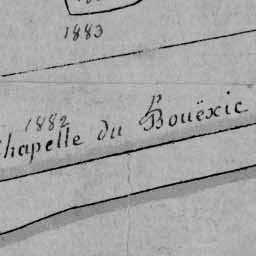 1883
1882
Chapelle du Bouëxic
P